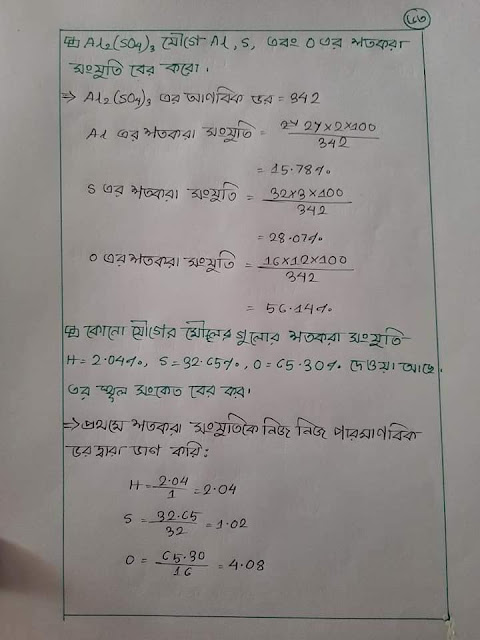 ৫৩
Al₂(SO₄)₃ যৌগে Al, S, এবং O এর শতকরা
সংযুতি বের করো।
⇒ Al₂(SO₄)₃ এর আণবিক ভর = 342
Al এর শতকরা সংযুতি = 27×2×100 / 342
= 15.78%
S এর শতকরা সংযুতি = 32×3×100 / 342
= 28.07%
O এর শতকরা সংযুতি = 16×12×100 / 342
= 56.14%
কোনো যৌগের মৌলের গুলোর শতকরা সংযুতি
H = 2.04%, S = 32.65%, O = 65.30% দেওয়া আছে,
এর স্থূল সংকেত বের কর।
⇒ প্রথমে শতকরা সংযুতিকে নিজ নিজ পারমাণবিক
ভর দ্বারা ভাগ করি:
H = 2.04 / 1 = 2.04
S = 32.65 / 32 = 1.02
O = 65.30 / 16 = 4.08